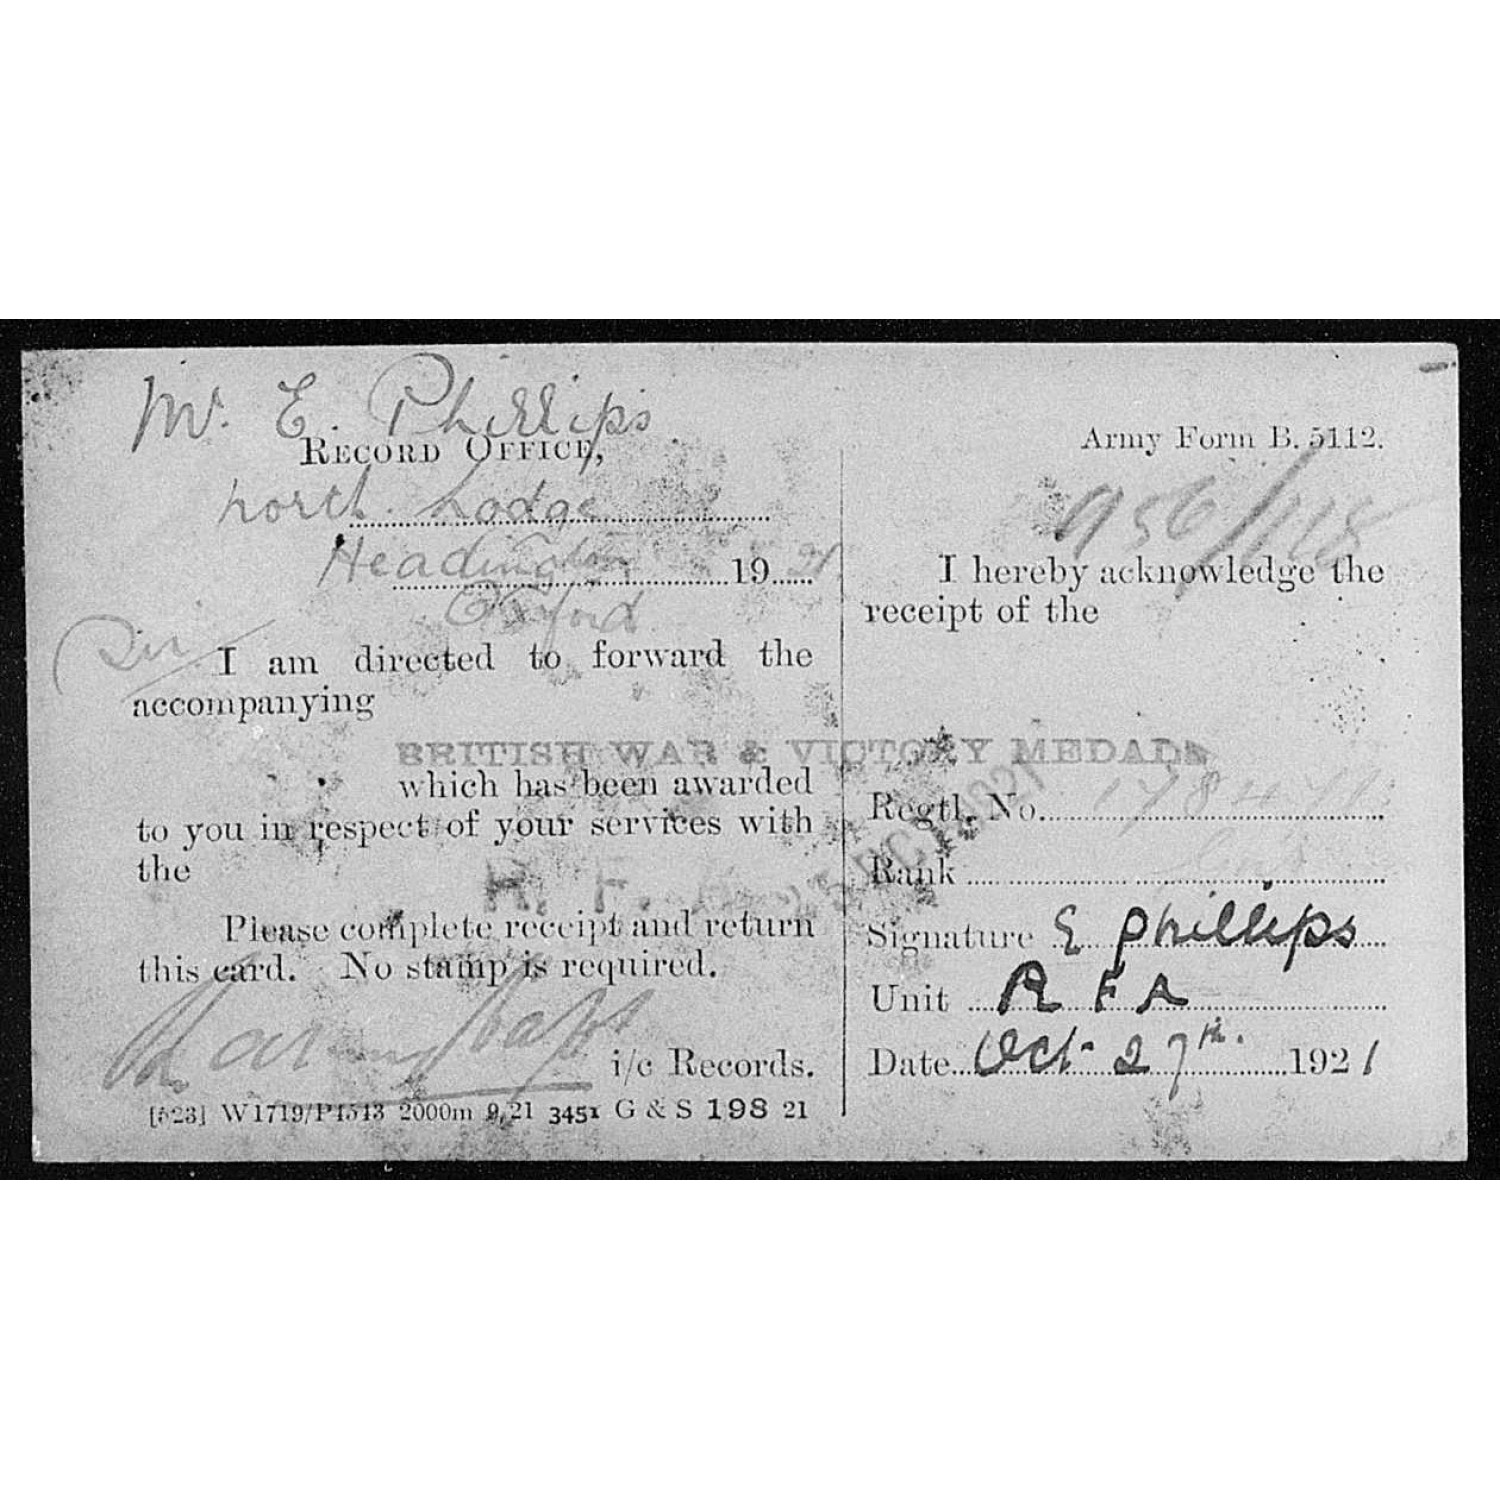 Mr. E. Phillips
RECORD OFFICE,
North Lodge
Headington 19 21
Oxford
Sir I am directed to forward the
accompanying
BRITISH WAR & VICTORY MEDALS
which has been awarded
to you in respect of your services with
the
R. F. A.
Please complete receipt and return
this card. No stamp is required.
i/c Records.
[523] W1719/P1513 2000m 9/21 3451 G & S 198 21
Army Form B. 5112.
I hereby acknowledge the
receipt of the
Regtl. No.
Rank
Signature E Phillips
Unit R F A
Date Oct 27th. 1921